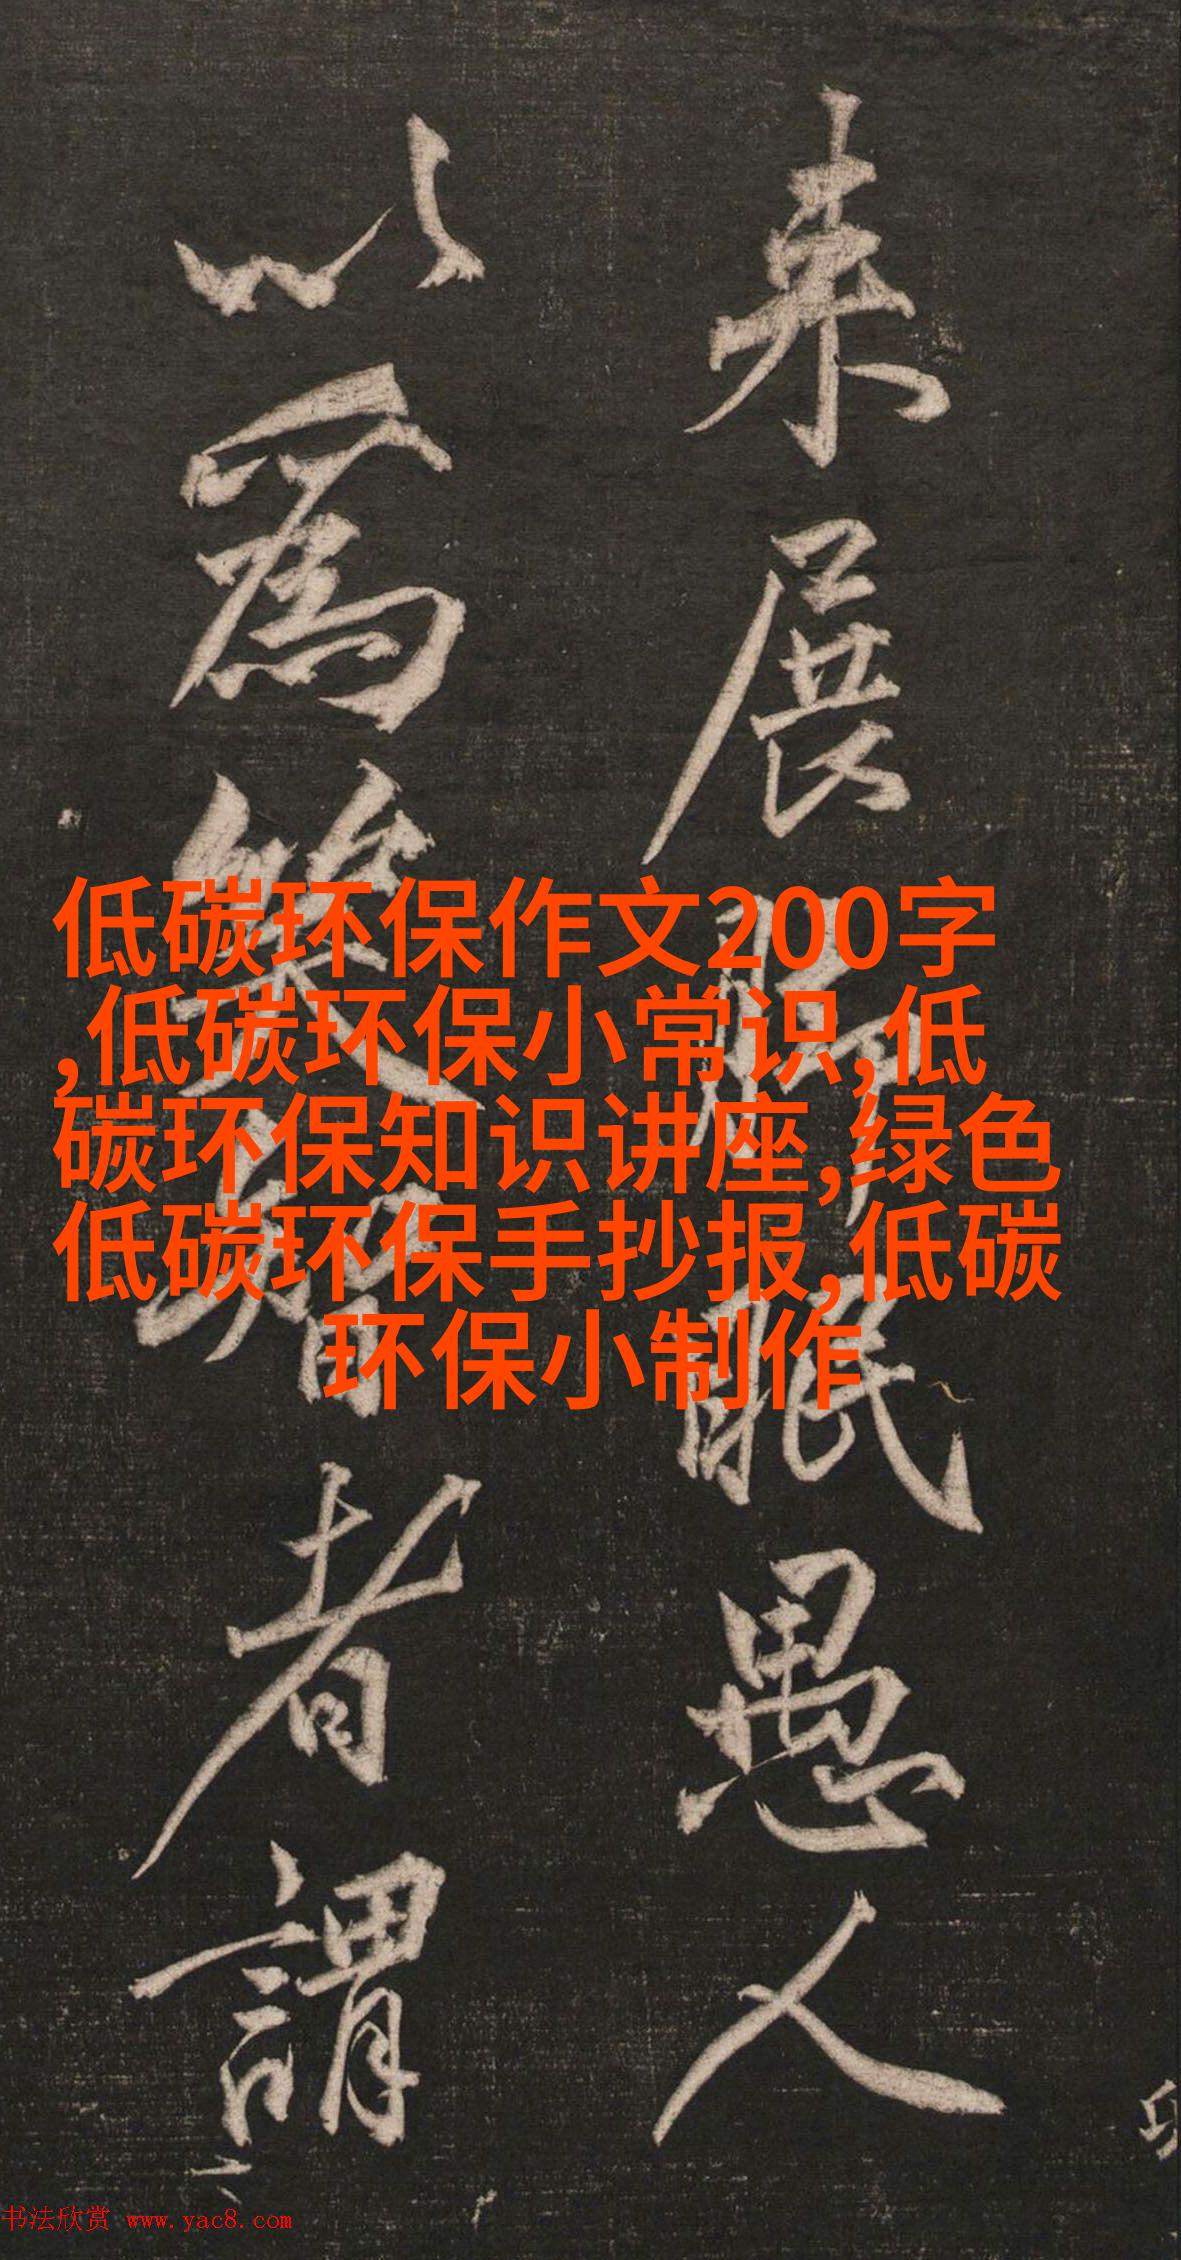 来展脚眠愚人
以為笑智者謂
低碳环保作文200字
,低碳环保小常识,低
碳环保知识讲座,绿色
低碳环保手抄报,低碳
环保小制作
书法欣赏 www.yac8.com